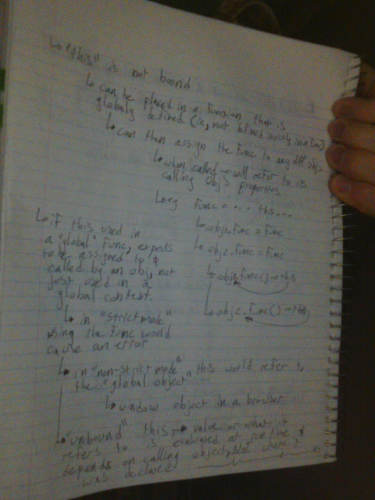 ↳ "this" is not bound
↳ can be placed in a function that is
globally defined (ie, not defined strictly in a func)
↳ can then assign the func to any diff objs
↳ when called → will refer to its
calling obj's properties
↳ eg func = ... this...
↳ obj1.func = func
↳ obj2.func = func
↳ obj1.func() → this
↳ obj2.func() → this
↳ if this used in
a "global" func, expects
to be assigned to &
called by an obj, not
just used in a
global context.
↳ in "strict mode"
using the func would
cause an error
↳ in "non-strict mode" this would refer to
the "global object"
↳ window object in a browser
↳ "unbound" this → value or what it
refers to is evaluated at run time &
depends on calling object, not where it
was declared